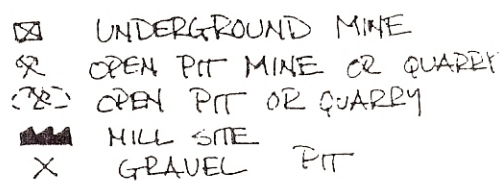 UNDERGROUND MINE
OPEN PIT MINE OR QUARRY
OPEN PIT OR QUARRY
MILL SITE
X GRAVEL PIT